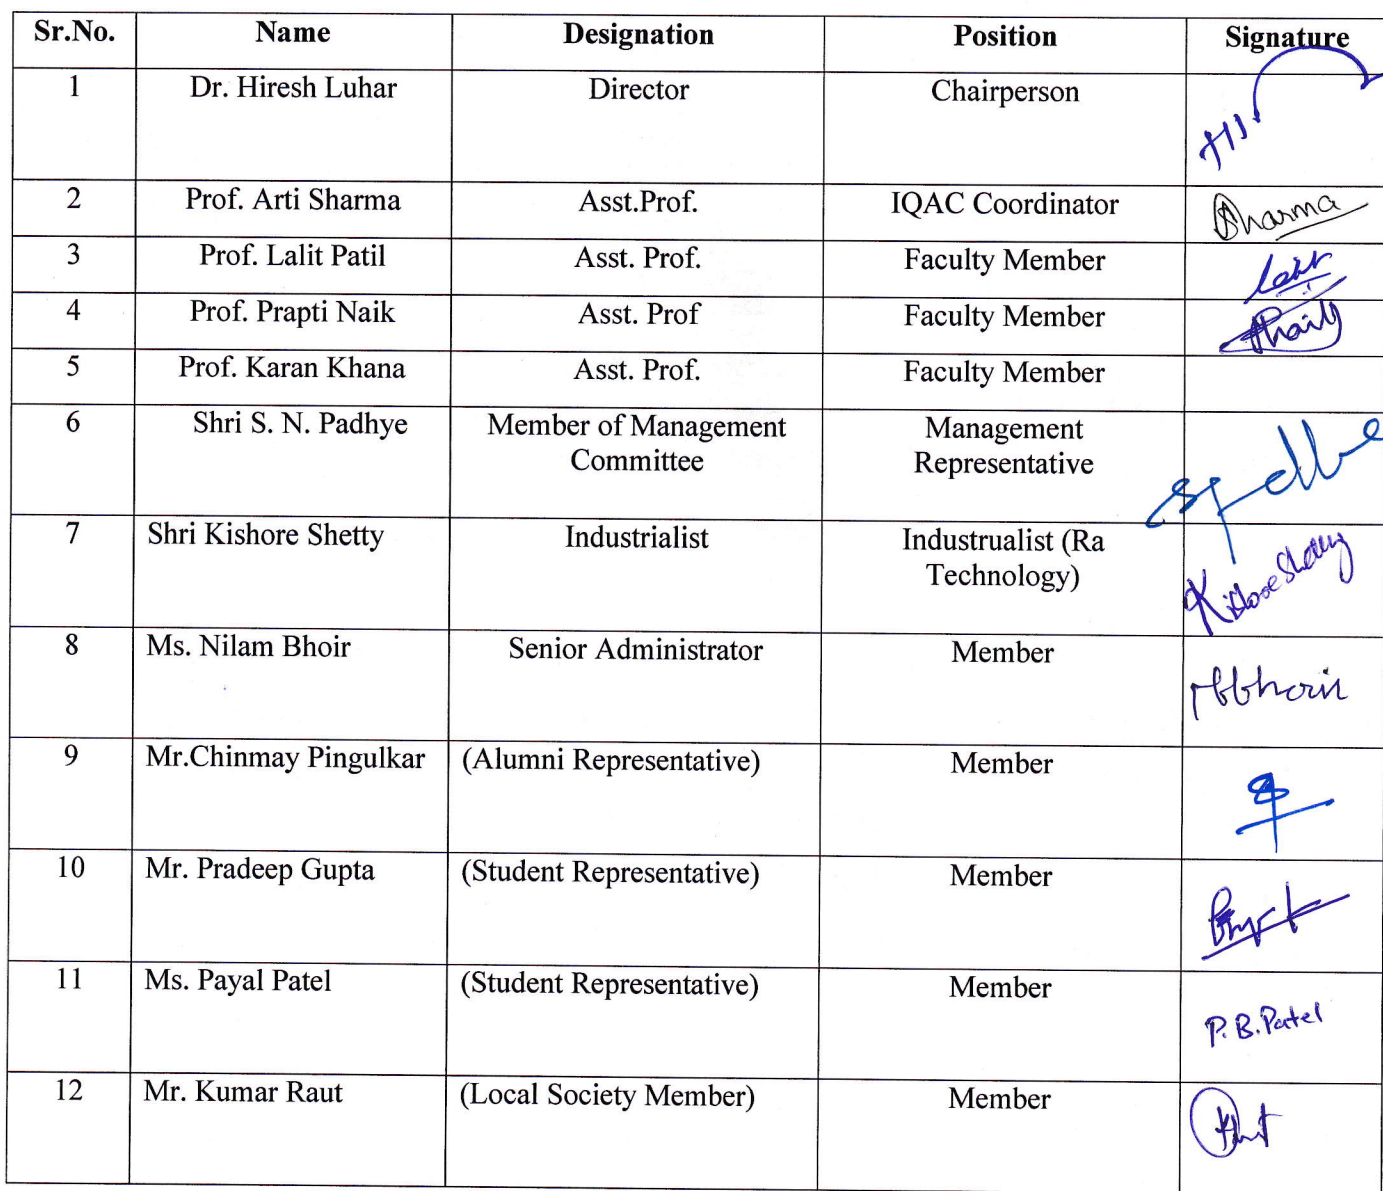 Sr.No. Name Designation Position Signature
1 Dr. Hiresh Luhar Director Chairperson
2 Prof. Arti Sharma Asst.Prof. IQAC Coordinator Sharma
3 Prof. Lalit Patil Asst. Prof. Faculty Member Lalit
4 Prof. Prapti Naik Asst. Prof Faculty Member
5 Prof. Karan Khana Asst. Prof. Faculty Member
6 Shri S. N. Padhye Member of Management Management
Committee Representative
7 Shri Kishore Shetty Industrialist Industrualist (Ra
Technology) Kishore Shetty
8 Ms. Nilam Bhoir Senior Administrator Member
9 Mr.Chinmay Pingulkar (Alumni Representative) Member
10 Mr. Pradeep Gupta (Student Representative) Member
11 Ms. Payal Patel (Student Representative) Member
P.B.Patel
12 Mr. Kumar Raut (Local Society Member) Member